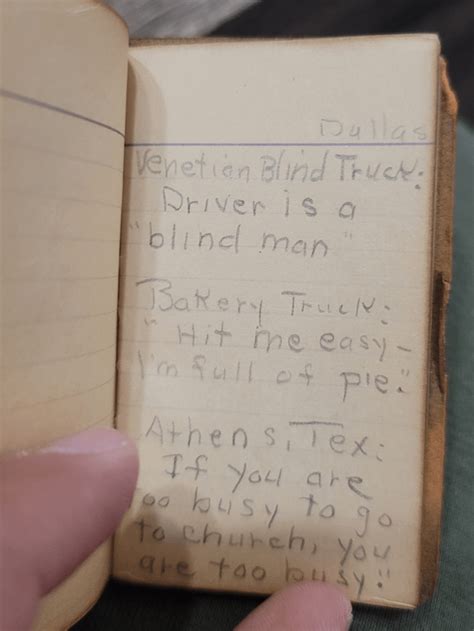 Dallas
Venetian Blind Truck:
Driver is a
"blind man"
Bakery Truck:
"Hit me easy—
I'm full of pie."
Athens, Tex:
If you are
too busy to go
to church, you
are too busy."